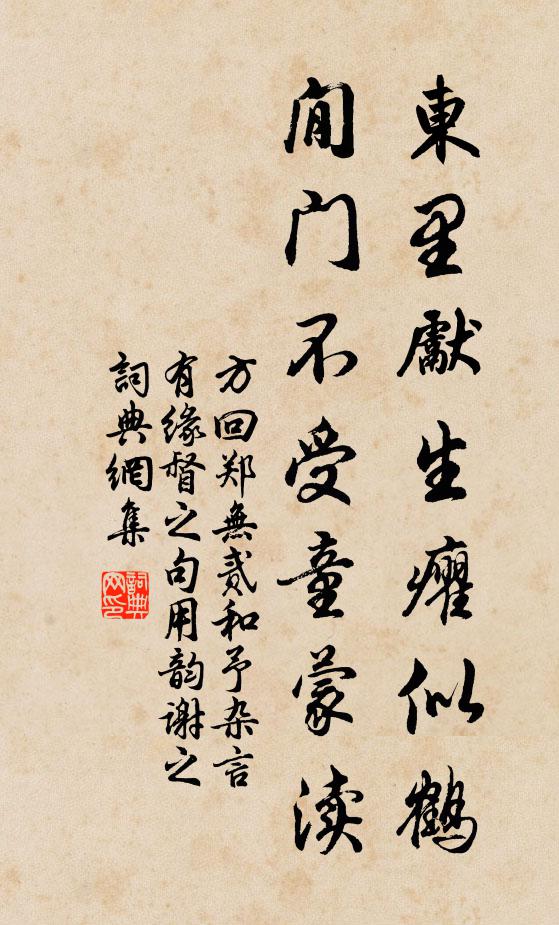 東里獻生癯似鶴
閒门不受童蒙渎
方回郑無贰和予杂言
有缘督之句用韵谢之
詞典網集
詞典网印